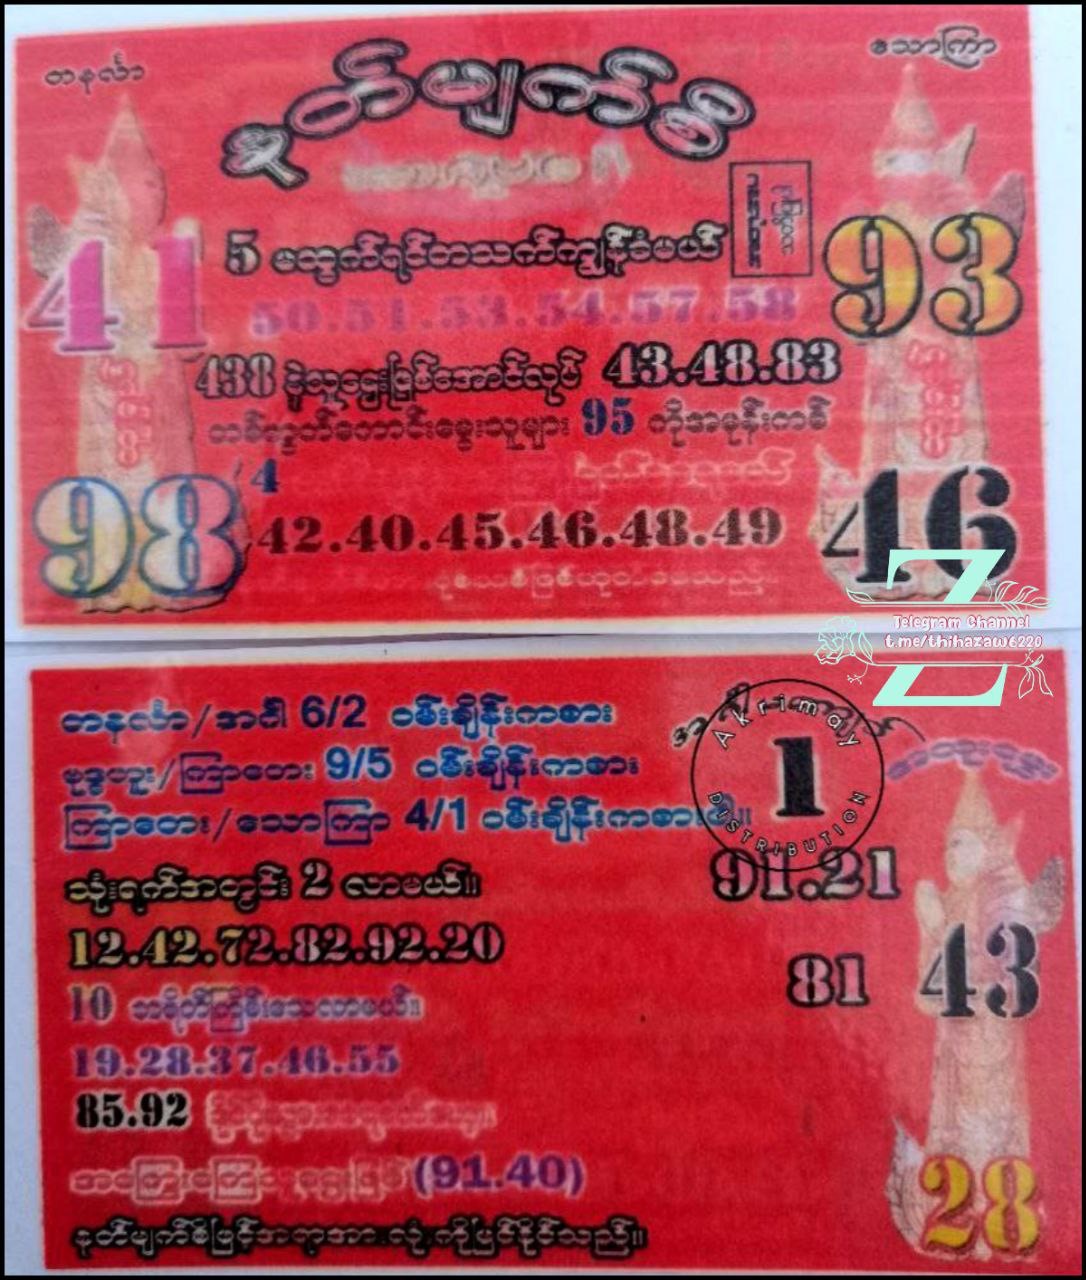 တနင်္လာ
သောကြာ
နတ်မျက်စိ
5 မထွက်ရင်တသက်ကျွန်ခံမယ်
41
93
50.51.53.54.57.58
438 နဲ့သူဌေးဖြစ်အောင်လုပ် 43.48.83
တစ်ကွက်ကောင်းမွေးသူများ 95 ကိုအမုန်းကစ်
98
4
46
42.40.45.46.48.49
Telegram Channel
t.me/thihazaw6220
Z
တနင်္လာ/အင်္ဂါ 6/2 ဝမ်းချိန်းကစား
ဗုဒ္ဓဟူး/ကြာတေး 9/5 ဝမ်းချိန်းကစား
ကြာတေး/သောကြာ 4/1 ဝမ်းချိန်းကစားပါ။
Akrimay
1
DISTRIBUTION
သုံးရက်အတွင်း 2 လာမယ်။
91.21
12.42.72.82.92.20
81
43
10 ဘရိတ်ကြိမ်းသေလာမယ်။
19.28.37.46.55
85.92
(91.40)
28
နတ်မျက်စိဖြင့်အတုအားလုံးကိုမြင်နိုင်သည်။